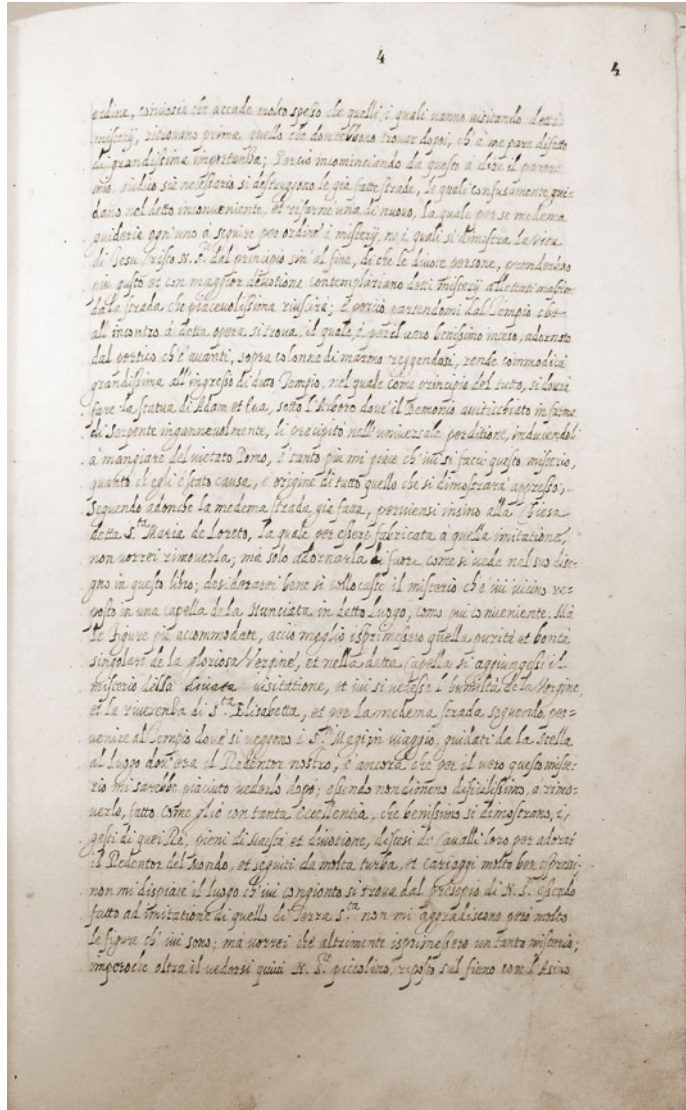 4
4
ordine, conciosia che accade molto spesso che quelli, i quali vanno visitando detti
misterij, ritrovano prima, quello che dovrebbono trovar dopoi, ch'à me pare difetto
di grandissima importanza; Perciò incominciando da questo à dire il parere
mio, giudico sia necessario si destrugiono le già fatte strade, le quali confusamente gui-
dano nel detto inconveniente, et rifarne una di nuovo, la quale per se medema
guideria ogn'uno à seguire per ordine i misterij, ne i quali si dimostra la vita
di Iesu Christo N. S. dal principio sin' al fine, di che le divote persone, prenderano
più gusto et con maggior devotione contemplariano detti misterij allettati
da la strada che piacevolissima riuscirà; e perciò partendomi dal Tempio che
all'incontro à detta opera si trova, il quale, è per il vero benissimo inteso, adornato
dal portico ch'è avanti, sopra colonne di marmo reggendosi, rende commodità
grandissima all'ingresso di detto Tempio, nel quale come principio del tutto, si dovria
fare la statua di Adam et Eva, sotto l'Arboro dove il Demonio aviticchiato in forma
di Serpente ingannevolmente, li precipitò nell'universale perditione, inducendoli
à mangiare del vietato Pomo, e tanto più mi piace ch'ivi si facci questo misterio,
quanto ch'egli è stato causa, e origine di tutto quello che si dimostrarà appresso;
Seguendo adonche la medema strada già fatta, perviensi insino alla Chiesa
detta S.ta Maria de Loreto, la quale per essere fabricata a quella imitatione,
non vorrei rimoverla; mà solo adornarla di fuore come si vede nel suo dise-
gno in questo libro; desiderarei bene si collocasse il misterio ch'è ivi vicino re-
posto in una capella de la Nunciata in detto luogo, come più conveniente. Mà
le figure più accommodate, acciò meglio esprimessero quella purità et bontà
singolare de la gloriosa Vergine, et nella detta Capella si aggiungessi il
misterio della divata visitatione, et ivi si vedesse l'humiltà de la Vergine,
et la riverenda di S.ta Elisabetta, et per la medema strada seguendo, per-
venire al Tempio dove si veggono i S.ti Magi in viaggio, guidati da la stella
al luogo dov'era il Redentor nostro, e ancora che per il vero questo miste-
rio mi sarebbe piaciuto vederlo dopò; essendo nondimeno dificilissimo, à rimo-
verlo, fatto come gliè con tanta eccellentia, che benissimo si dimostrano, i,
gesti di quei Re, pieni di Maestà et divotione, discesi di Cavalli loro per adorar
il Redentor del Mondo, et seguiti da molta turba, et cariaggi molto ben espressi
non mi dispiace il luogo ch'ivi congionto si trova dal presepio di N. S. essendo
fatto ad imitatione di quello di Terra S.ta non mi aggradiscono però molto
le figure ch'ivi sono; mà vorrei che altrimente isprimessero un tanto misterio;
imperoche oltra il vedersi quivi N. S.re piccolino, riposto sul fieno con l'Asino